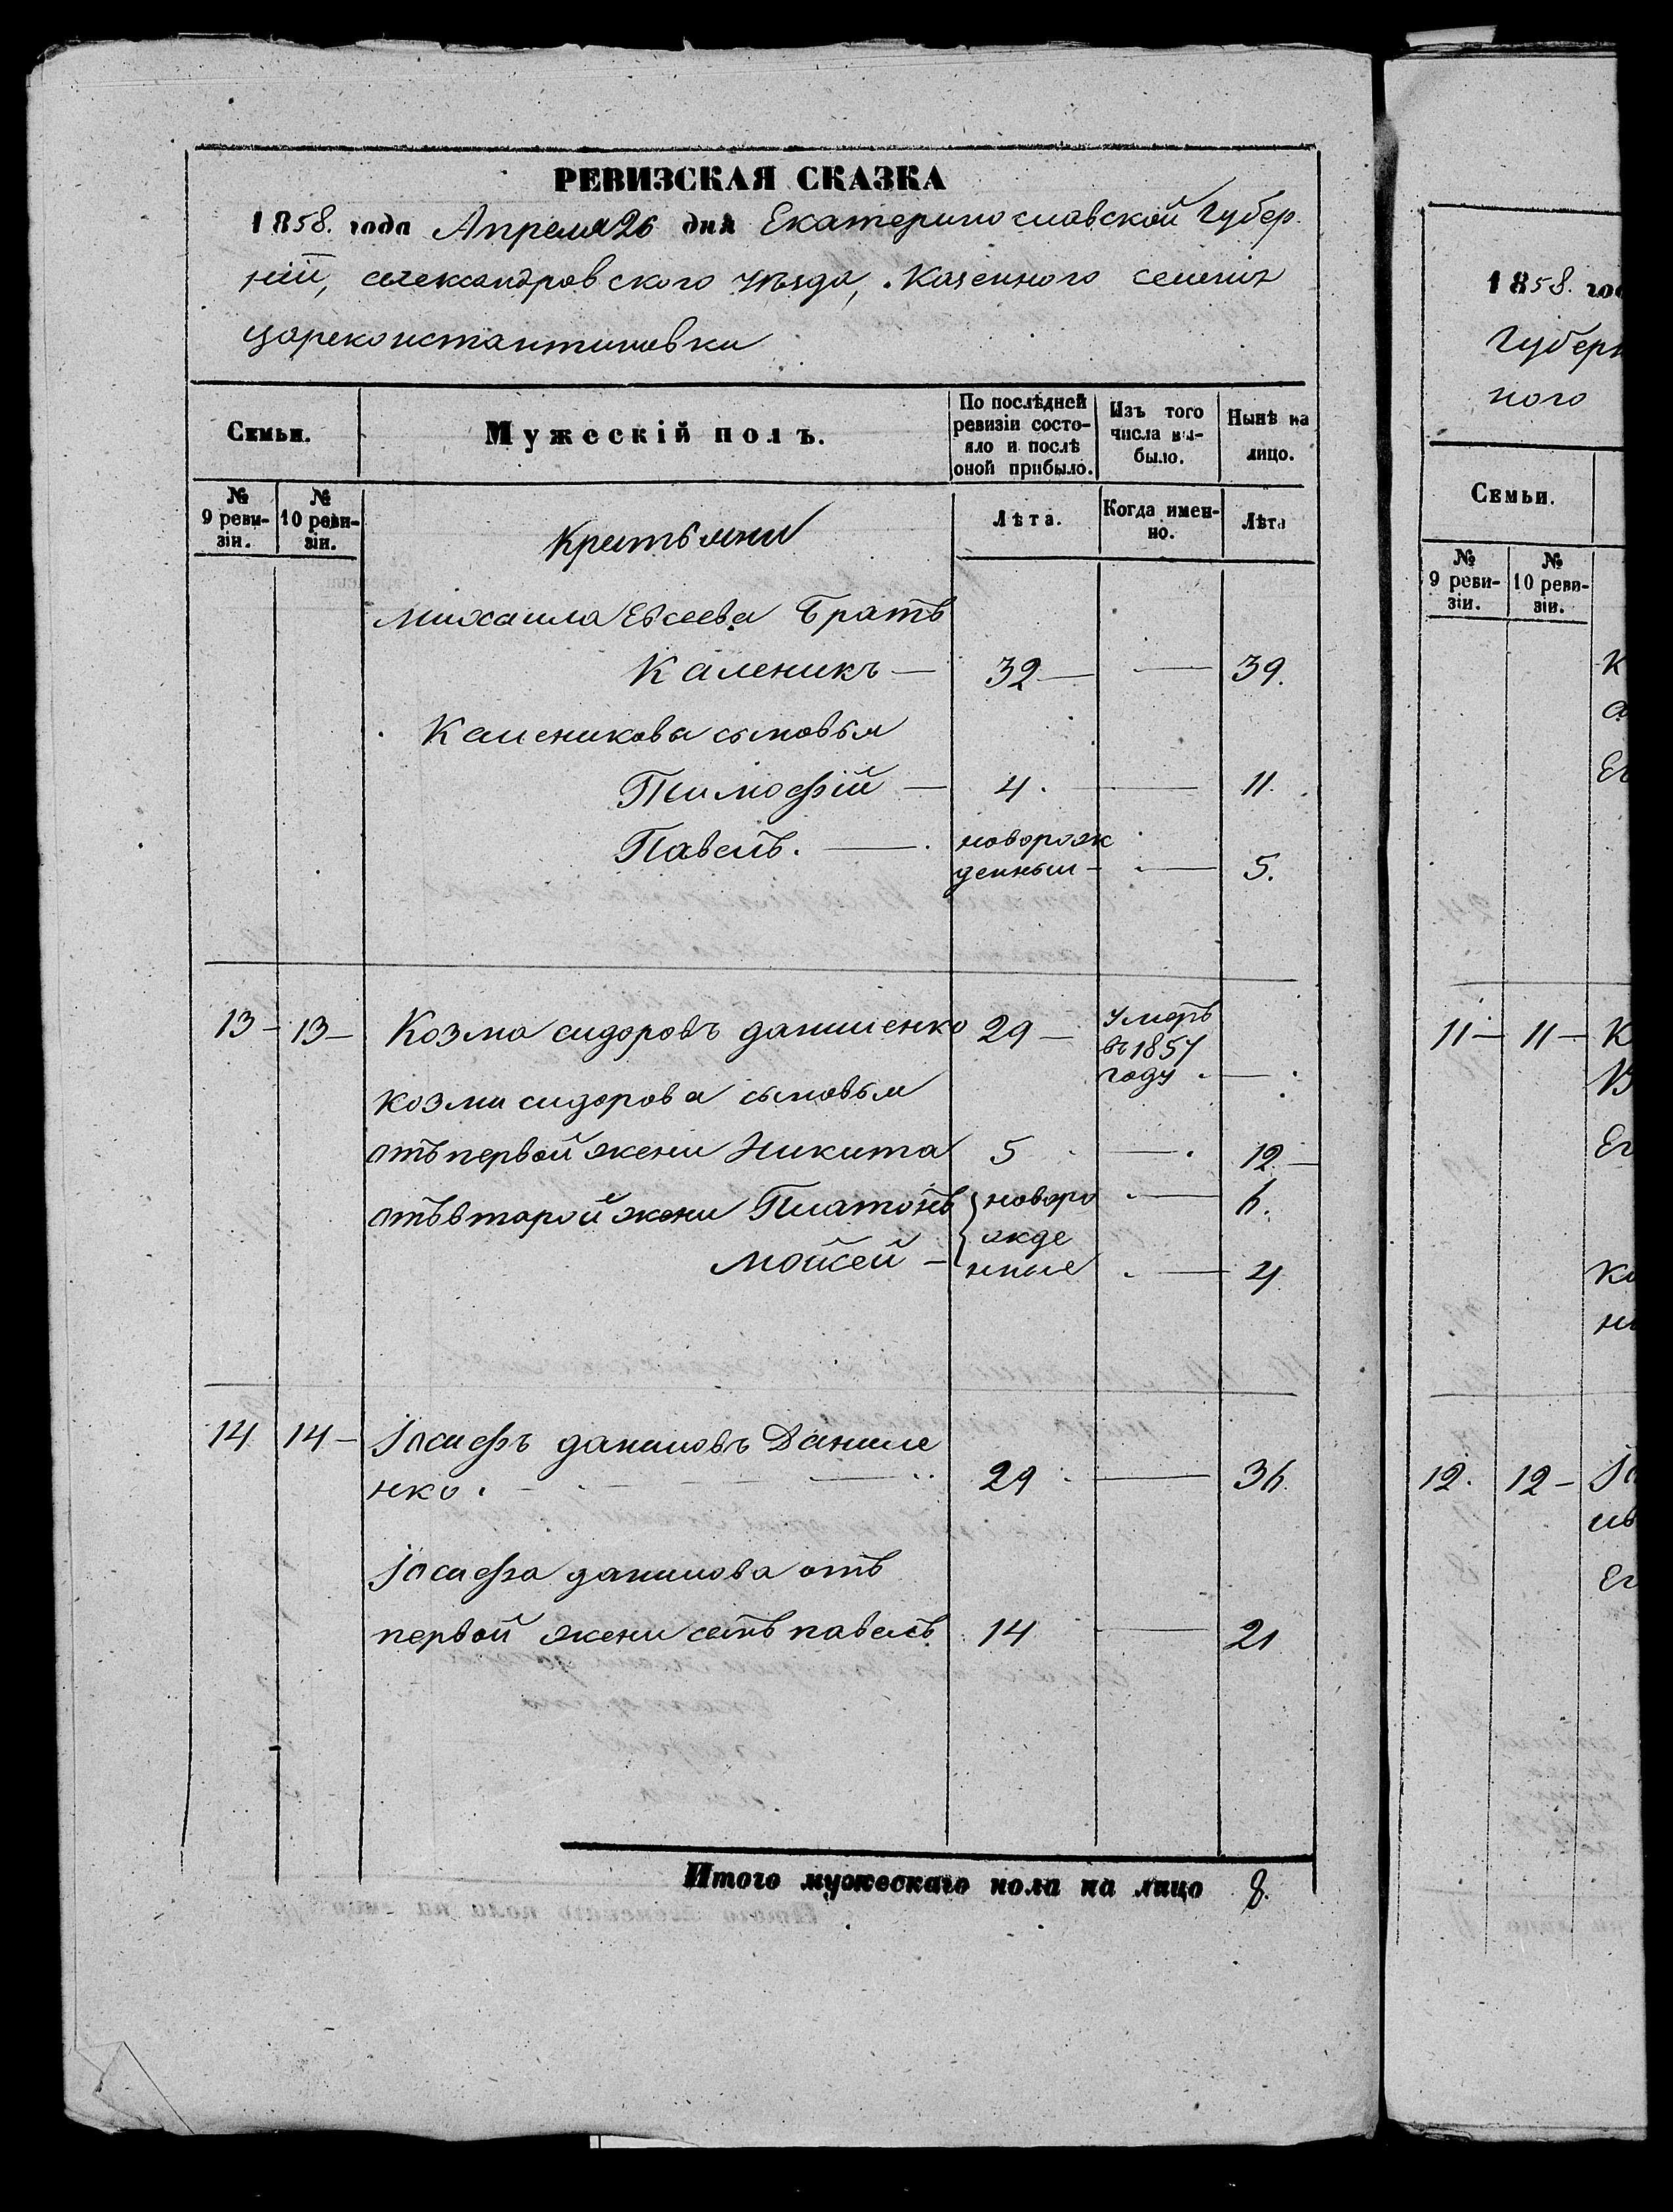 РЕВИЗСКАЯ СКАЗКА
1858. года Апреля 26 дня Екатеринославской Губер
ніи, Александровского уѣзда, Казенного селенія
Цареконстантиновки
Семьи.
Мужескій полъ.
По послѣдней ревизіи состояло и послѣ оной прибыло.
Изъ того числа выбыло.
Нынѣ на лицо.
№ 9 ревизіи.
№ 10 ревизіи.
Крестьяни
Лѣта.
Когда именно.
Лѣта
Михаила Евсеева Братъ
Каленикъ — 32 — — 39.
Каленикова сыновья
Тимофій — 4. — 11.
Павелъ. — новорож
денный — — 5.
13 — 13 — Козма сидоровъ данишенко 29 — умеръ
въ 1857
году. — .
козми сидорова сыновья
отъ первой жени Никита 5 — . 12 —
отъ второй жени Платонъ новоро — 6.
жде
Мойсей — нные — 4
14 14 — Іосифъ даниловъ Даниле
нко. — 29 — 36.
Іосифа данилова отъ
первой жени синъ павелъ 14 — 21
Итого мужескаго пола на лицо 8.
1858. го
Губерн
ного
Семьи.
№ 9 ревизіи.
№ 10 ревизіи.
К
Ег
11 — 11 — К
Ег
12. 12 —
Ег